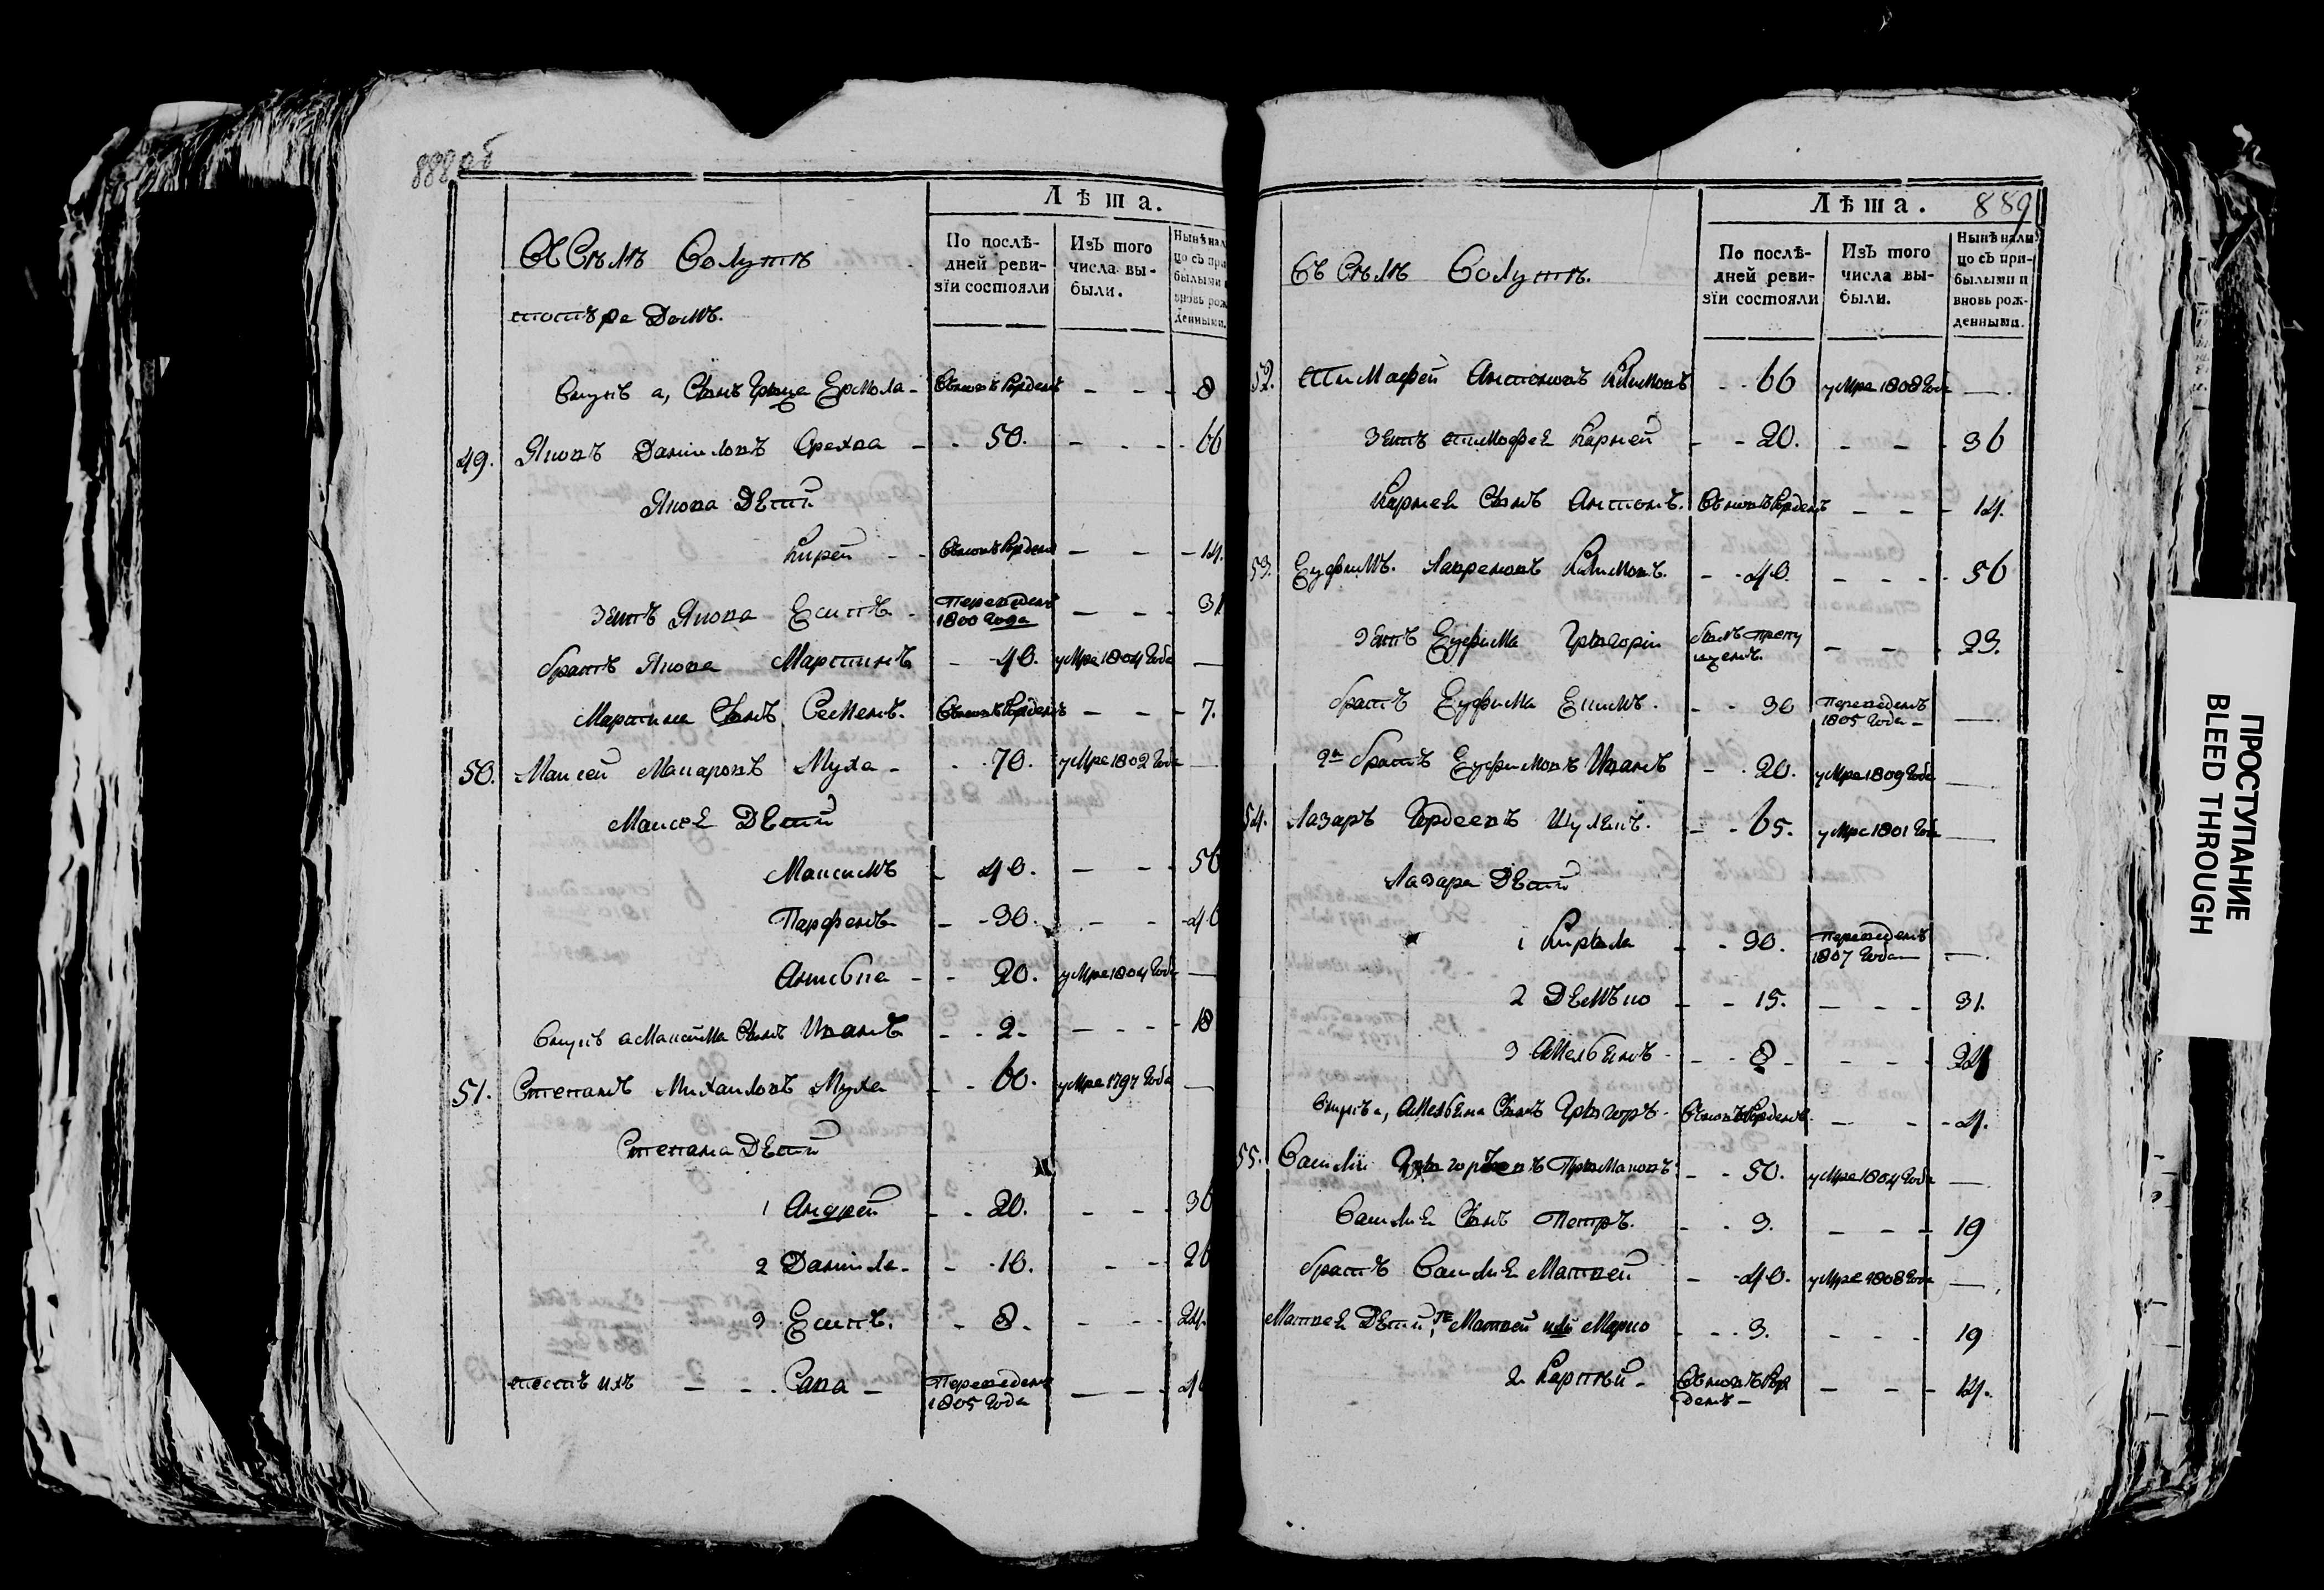 888 об
Лѣта.
По послѣ-
дней реви-
зїи состояли
Изъ того
числа вы-
были.
Нынѣ нали
цо съ при
былыми и
вновь рож
денными.
Въ Селѣ Волутѣ
Внукъ а, Сынъ Грыца Ермола - Въновѣ Рожденъ - - - 8
49. Яковъ Даниловъ Орехва - - 50. - - - 66
Якова Дети
Кирей - - Въновѣ Рожденъ - - - 14.
Зеть Якова Есипъ - Переведенъ 1800 Года - - - 31
братъ Якова Мартинъ - - 40. умре 1804 Года —
Мартина Сынъ Семенъ. Въновѣ Рожденъ - - - 7.
50. Моисей Макаровъ Муха - - 70. умре 1802 Года —
Моисея Дети
Максимъ - 40. - - 56
Парфенъ - - 30. - - 46
- - 20. умре 1804 Года —
Внукъ а Максима Сынъ Иванъ - - 2 - - - - 18
51. Степанъ Михаиловъ Муха - - 60. умре 1797 Года —
Степана Дети
1 Андрей - - 20. - - - 36
2 Данила - - 10. - - 26
3 Есипъ. - 8 - - - - 24.
тесть ихъ - - Сава - Переведенъ 1805 Года - - -
889
Лѣта.
По послѣ-
дней реви-
зїи состояли
Изъ того
числа вы-
были.
Нынѣ нали
цо съ при-
былыми и
вновь рож-
денными.
Въ Селѣ Волутѣ.
52. Тимофей Антоновъ Климовъ - - 66 умре 1808 Года —
Зеть Тимофея Карней - - 20. - - - 36
Карнея Сынъ Антонъ. Въновѣ Рожденъ - - - 14.
53. Еуфимъ. Лавреновъ Климовъ. - - 40. - - - 56
Зеть Еуфима Грыгорій былъ пропу щенъ. - - - 23.
братъ Еуфима Екимъ. - - 30 Переведенъ 1805 Года - —
2й братъ Еуфимовъ Иванъ - - 20. умре 1809 Года —
54. Лазаръ Гордеевъ Шулякъ. - - 65. умре 1801 Года —
Лазара Дети
1 Кирыла - - 30. Переведенъ 1807 Года —
2 Демъко - - 15. - - - 31.
3 Амельянъ - - - 8 - - - - 24
Внукъ а, Амельяна Сынъ Грыгоръ - Въновѣ Рожденъ. - - - 4.
55. Василїи Грыгорьевъ Прымаковъ - - 50. умре 1804 Года —
Василия Сынъ Петръ. - - 3. - - - 19
братъ Василия Матвей - - 40. умре 1808 Года —
Матвея Дети, 1е Матвей или Марко - - - 3. - - - 19
2 Карпѣй - Въновѣ Рож денъ - - - - 14.
ПРОСТУПАНИЕ
BLEED THROUGH